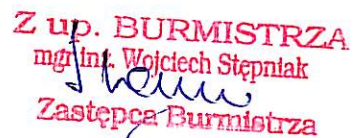 Z up. BURMISTRZA
mgr inż. Wojciech Stępniak
Zastępca Burmistrza